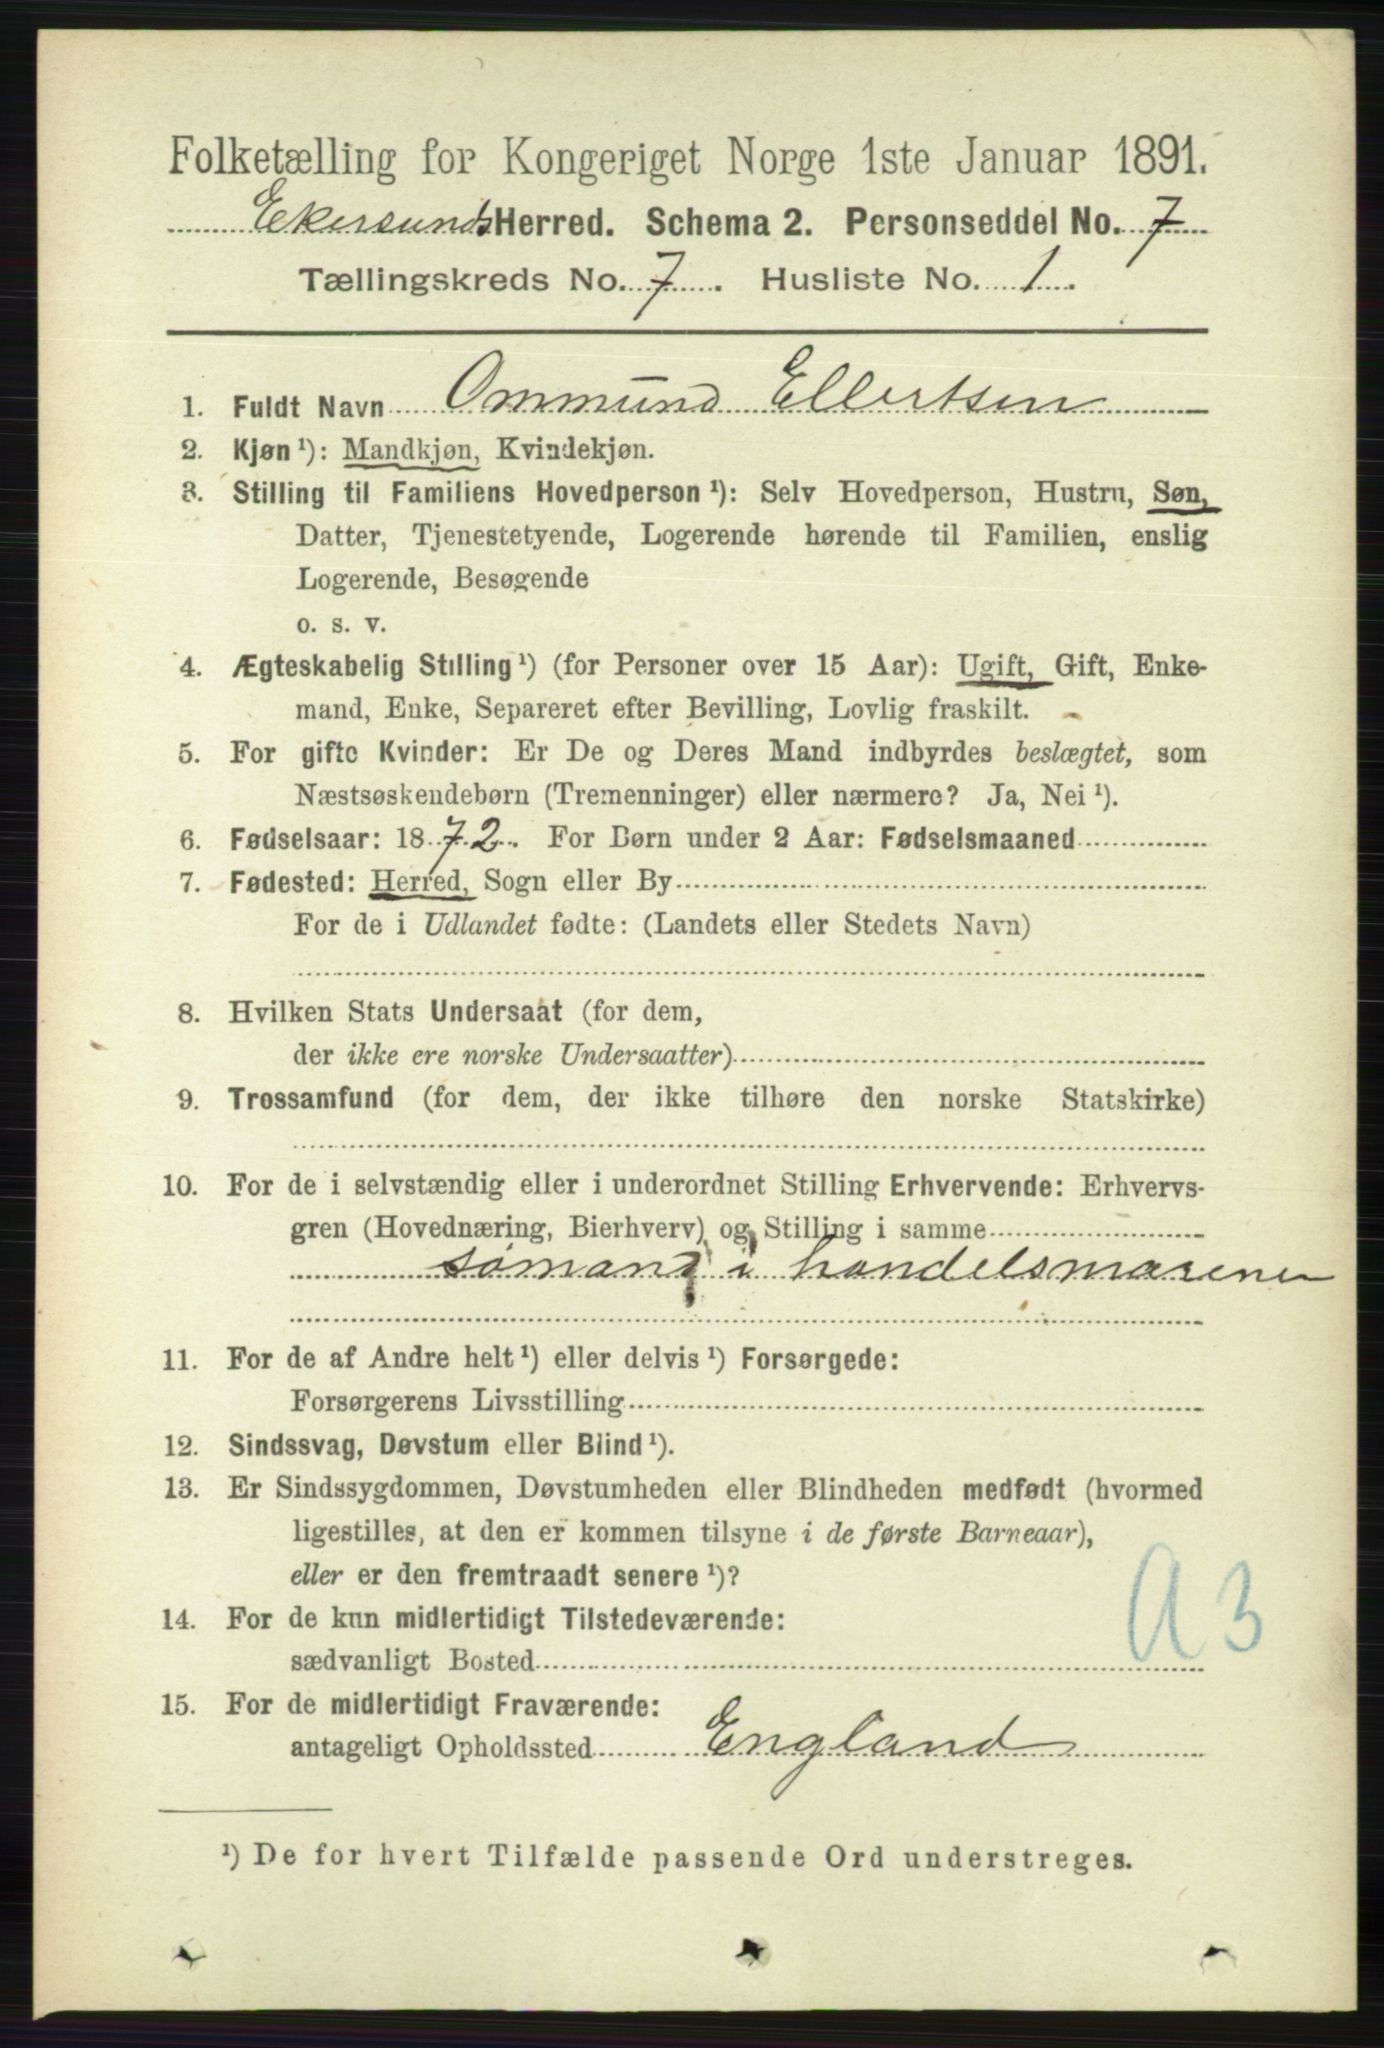 Folketælling for Kongeriget Norge 1ste Januar 1891.
Ekersunds Herred. Schema 2. Personseddel No. 7
Tællingskreds No. 7. Husliste No. 1.
1. Fuldt Navn Ommund Ellertsen
2. Kjøn ¹): Mandkjøn, Kvindekjøn.
3. Stilling til Familiens Hovedperson ¹): Selv Hovedperson, Hustru, Søn,
Datter, Tjenestetyende, Logerende hørende til Familien, enslig
Logerende, Besøgende
o. s. v.
4. Ægteskabelig Stilling ¹) (for Personer over 15 Aar): Ugift, Gift, Enke-
mand, Enke, Separeret efter Bevilling, Lovlig fraskilt.
5. For gifte Kvinder: Er De og Deres Mand indbyrdes beslægtet, som
Næstsøskendebørn (Tremenninger) eller nærmere? Ja, Nei ¹).
6. Fødselsaar: 1872. For Børn under 2 Aar: Fødselsmaaned
7. Fødested: Herred, Sogn eller By
For de i Udlandet fødte: (Landets eller Stedets Navn)
8. Hvilken Stats Undersaat (for dem,
der ikke ere norske Undersaatter)
9. Trossamfund (for dem, der ikke tilhøre den norske Statskirke)
10. For de i selvstændig eller i underordnet Stilling Erhvervende: Erhvervs-
gren (Hovednæring, Bierhverv) og Stilling i samme
sømand i handelsmarenen
11. For de af Andre helt ¹) eller delvis ¹) Forsørgede:
Forsørgerens Livsstilling
12. Sindssvag, Døvstum eller Blind ¹).
13. Er Sindssygdommen, Døvstumheden eller Blindheden medfødt (hvormed
ligestilles, at den er kommen tilsyne i de første Barneaar),
eller er den fremtraadt senere ¹)?
A3
14. For de kun midlertidigt Tilstedeværende:
sædvanligt Bosted
15. For de midlertidigt Fraværende:
antageligt Opholdssted England
¹) De for hvert Tilfælde passende Ord understreges.